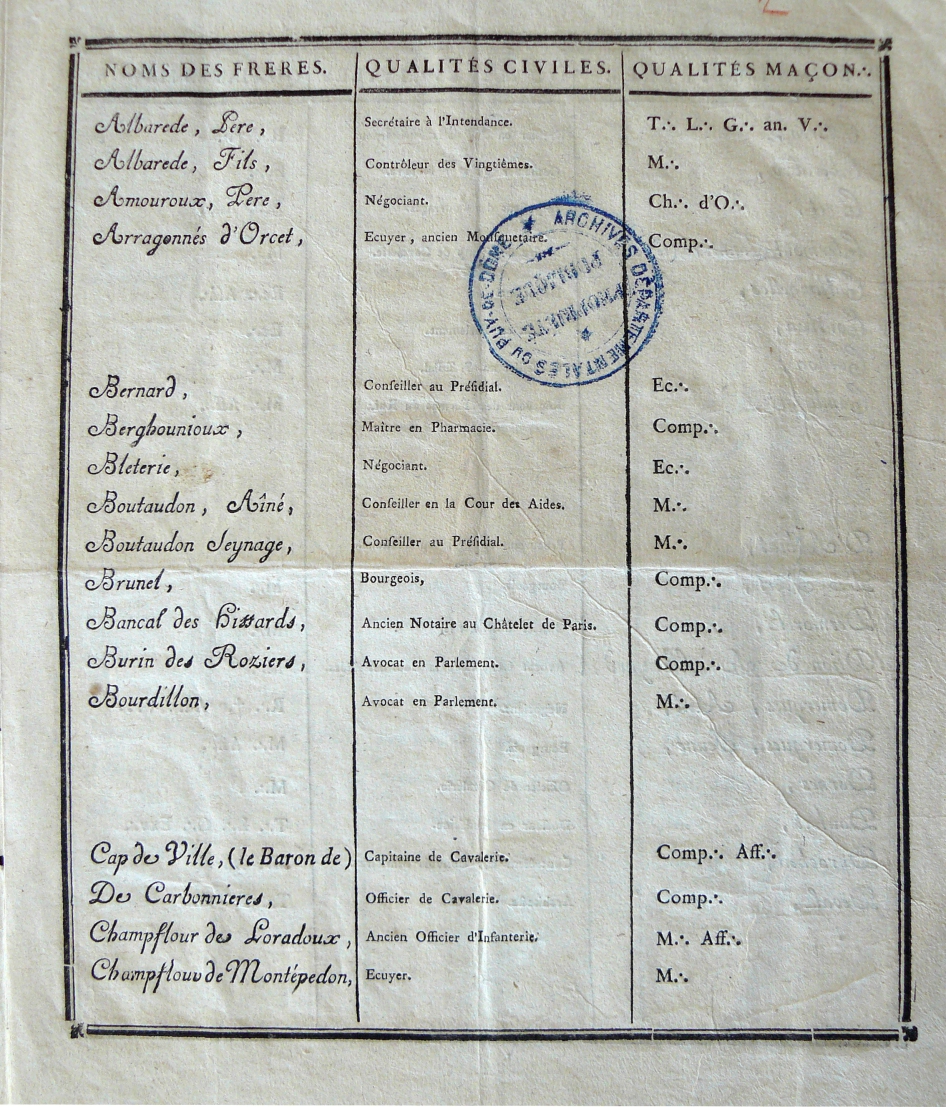 2
NOMS DES FRERES. QUALITÉS CIVILES. QUALITÉS MAÇON.·.
Albarede, Pere, Secrétaire à l'Intendance. T.·. L.·. G.·. an. V.·.
Albarede, Fils, Contrôleur des Vingtièmes. M.·.
Amouroux, Pere, Négociant. Ch.·. d'O.·.
Arragonnés d'Orcet, Ecuyer, ancien Mousquetaire. Comp.·.
ARCHIVES DÉPARTEMENTALES DU PUY-DE-DÔME
PROPRIÉTÉ
PUBLIQUE
Bernard, Conseiller au Présidial. Ec.·.
Berghounioux, Maître en Pharmacie. Comp.·.
Bleterie, Négociant. Ec.·.
Boutaudon, Aîné, Conseiller en la Cour des Aides. M.·.
Boutaudon Seynage, Conseiller au Présidial. M.·.
Brunel, Bourgeois, Comp.·.
Bancal des Hissards, Ancien Notaire au Châtelet de Paris. Comp.·.
Burin des Roziers, Avocat en Parlement. Comp.·.
Bourdillon, Avocat en Parlement. M.·.
Cap de Ville, (le Baron de) Capitaine de Cavalerie. Comp.·. Aff.·.
De Carbonnieres, Officier de Cavalerie. Comp.·.
Champflour de Loradoux, Ancien Officier d'Infanterie. M.·. Aff.·.
Champflour de Montépedon, Ecuyer. M.·.